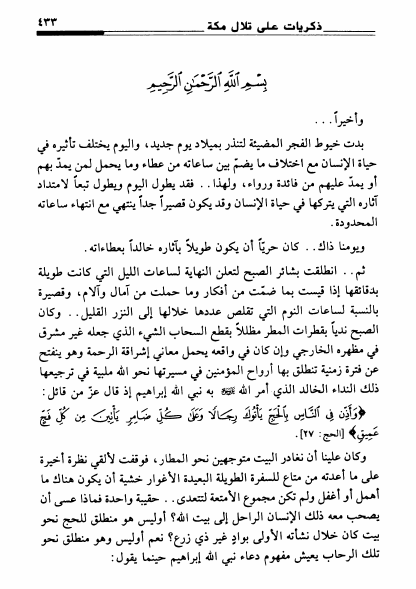 ذكريات على تلال مكة ٤٣٣
بِسْمِ اللَّهِ الرَّحْمَٰنِ الرَّحِيمِ
وأخيراً...
بدت خيوط الفجر المضيئة لتنذر بميلاد يوم جديد، واليوم يختلف تأثيره في
حياة الإنسان مع اختلاف ما يضمّ بين ساعاته من عطاء وما يحمل لمن يمدّ بهم
أو يمدّ عليهم من فائدة ورواء، ولهذا.. فقد يطول اليوم ويطول تبعاً لامتداد
آثاره التي يتركها في حياة الإنسان وقد يكون قصيراً جداً ينتهي مع انتهاء ساعاته
المحدودة.
ويومنا ذاك.. كان حريّاً أن يكون طويلاً بآثاره خالداً بعطاءاته.
ثم.. انطلقت بشائر الصبح لتعلن النهاية لساعات الليل التي كانت طويلة
بدقائقها إذا قيست بما ضمّت من أفكار وما حملت من آمال وآلام، وقصيرة
بالنسبة لساعات النوم التي تقلص عددها خلالها إلى النزر القليل.. وكان
الصبح ندياً بقطرات المطر مظللاً بقطع السحاب الشيء الذي جعله غير مشرق
في مظهره الخارجي وإن كان في واقعه يحمل معاني إشراقة الرحمة وهو ينفتح
عن فترة زمنية تنطلق بها أرواح المؤمنين في مسيرتها نحو الله ملبية في ترجيعها
ذلك النداء الخالد الذي أمر الله به نبي الله إبراهيم إذ قال عزّ من قائل:
﴿وَأَذِّن فِي النَّاسِ بِالْحَجِّ يَأْتُوكَ رِجَالًا وَعَلَىٰ كُلِّ ضَامِرٍ يَأْتِينَ مِن كُلِّ فَجٍّ
عَمِيقٍ﴾ [الحج: ٢٧].
وكان علينا أن نغادر البيت متوجهين نحو المطار، فوقفت لألقي نظرة أخيرة
على ما أعدته من متاع للسفرة الطويلة البعيدة الأغوار خشية أن يكون هناك ما
أهمل أو أغفل ولم تكن مجموع الأمتعة لتتعدى.. حقيبة واحدة فماذا عسى أن
يصحب معه ذلك الإنسان الراحل إلى بيت الله؟ أوليس هو منطلق للحج نحو
بيت كان خلال نشأته الأولى بوادٍ غير ذي زرع؟ نعم أوليس وهو منطلق نحو
تلك الرحاب يعيش مفهوم دعاء نبي الله إبراهيم حينما يقول: